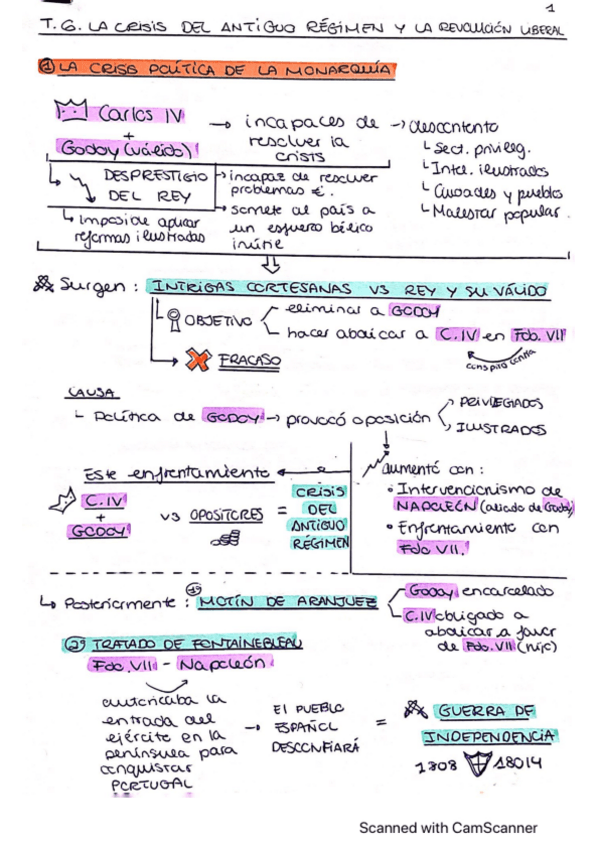 1
T. 6. LA CRISIS DEL ANTIGUO RÉGIMEN Y LA REVOLUCIÓN LIBERAL
① LA CRISIS POLÍTICA DE LA MONARQUÍA
Carlos IV
+
Godoy (válido)
→ incapaces de resolver la crisis
→ descontento
Sect. privileg.
Inte. ilustrados
Ciudades y pueblos
Malestar popular.
DESPRESTIGIO DEL REY
→ incapaz de resolver problemas €.
→ somete al país a un esfuerzo bélico inútil
Imposible aplicar reformas ilustradas
Surgen: INTRIGAS CORTESANAS VS REY Y SU VÁLIDO
OBJETIVO
eliminar a GODOY
hacer abdicar a C.IV en Fdo. VII
conspira contra
FRACASO
CAUSA
Política de GODOY → provocó oposición
PRIVILEGIADOS
ILUSTRADOS
aumentó con:
• Intervencionismo de NAPOLEÓN (aliado de Godoy)
• Enfrentamiento con Fdo VII.
Este enfrentamiento
C.IV
+
GODOY
VS OPOSITORES
= CRISIS DEL ANTIGUO RÉGIMEN
↳ Posteriormente: MOTÍN DE ARANJUEZ
Godoy encarcelado
C.IV obligado a abdicar a favor de Fdo. VII (hijo)
TRATADO DE FONTAINEBLEAU
Fdo. VII - Napoleón
autorizaba la entrada del ejército en la península para conquistar PORTUGAL
→ El PUEBLO ESPAÑOL DESCONFIARÁ
= GUERRA DE INDEPENDENCIA
1808 18014
Scanned with CamScanner